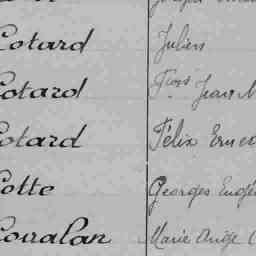 Cotard Julien
Cotard Fçois Jean M
Cotard Félix Ernes
Cotte Georges Eugè
Couralan Marie Ange